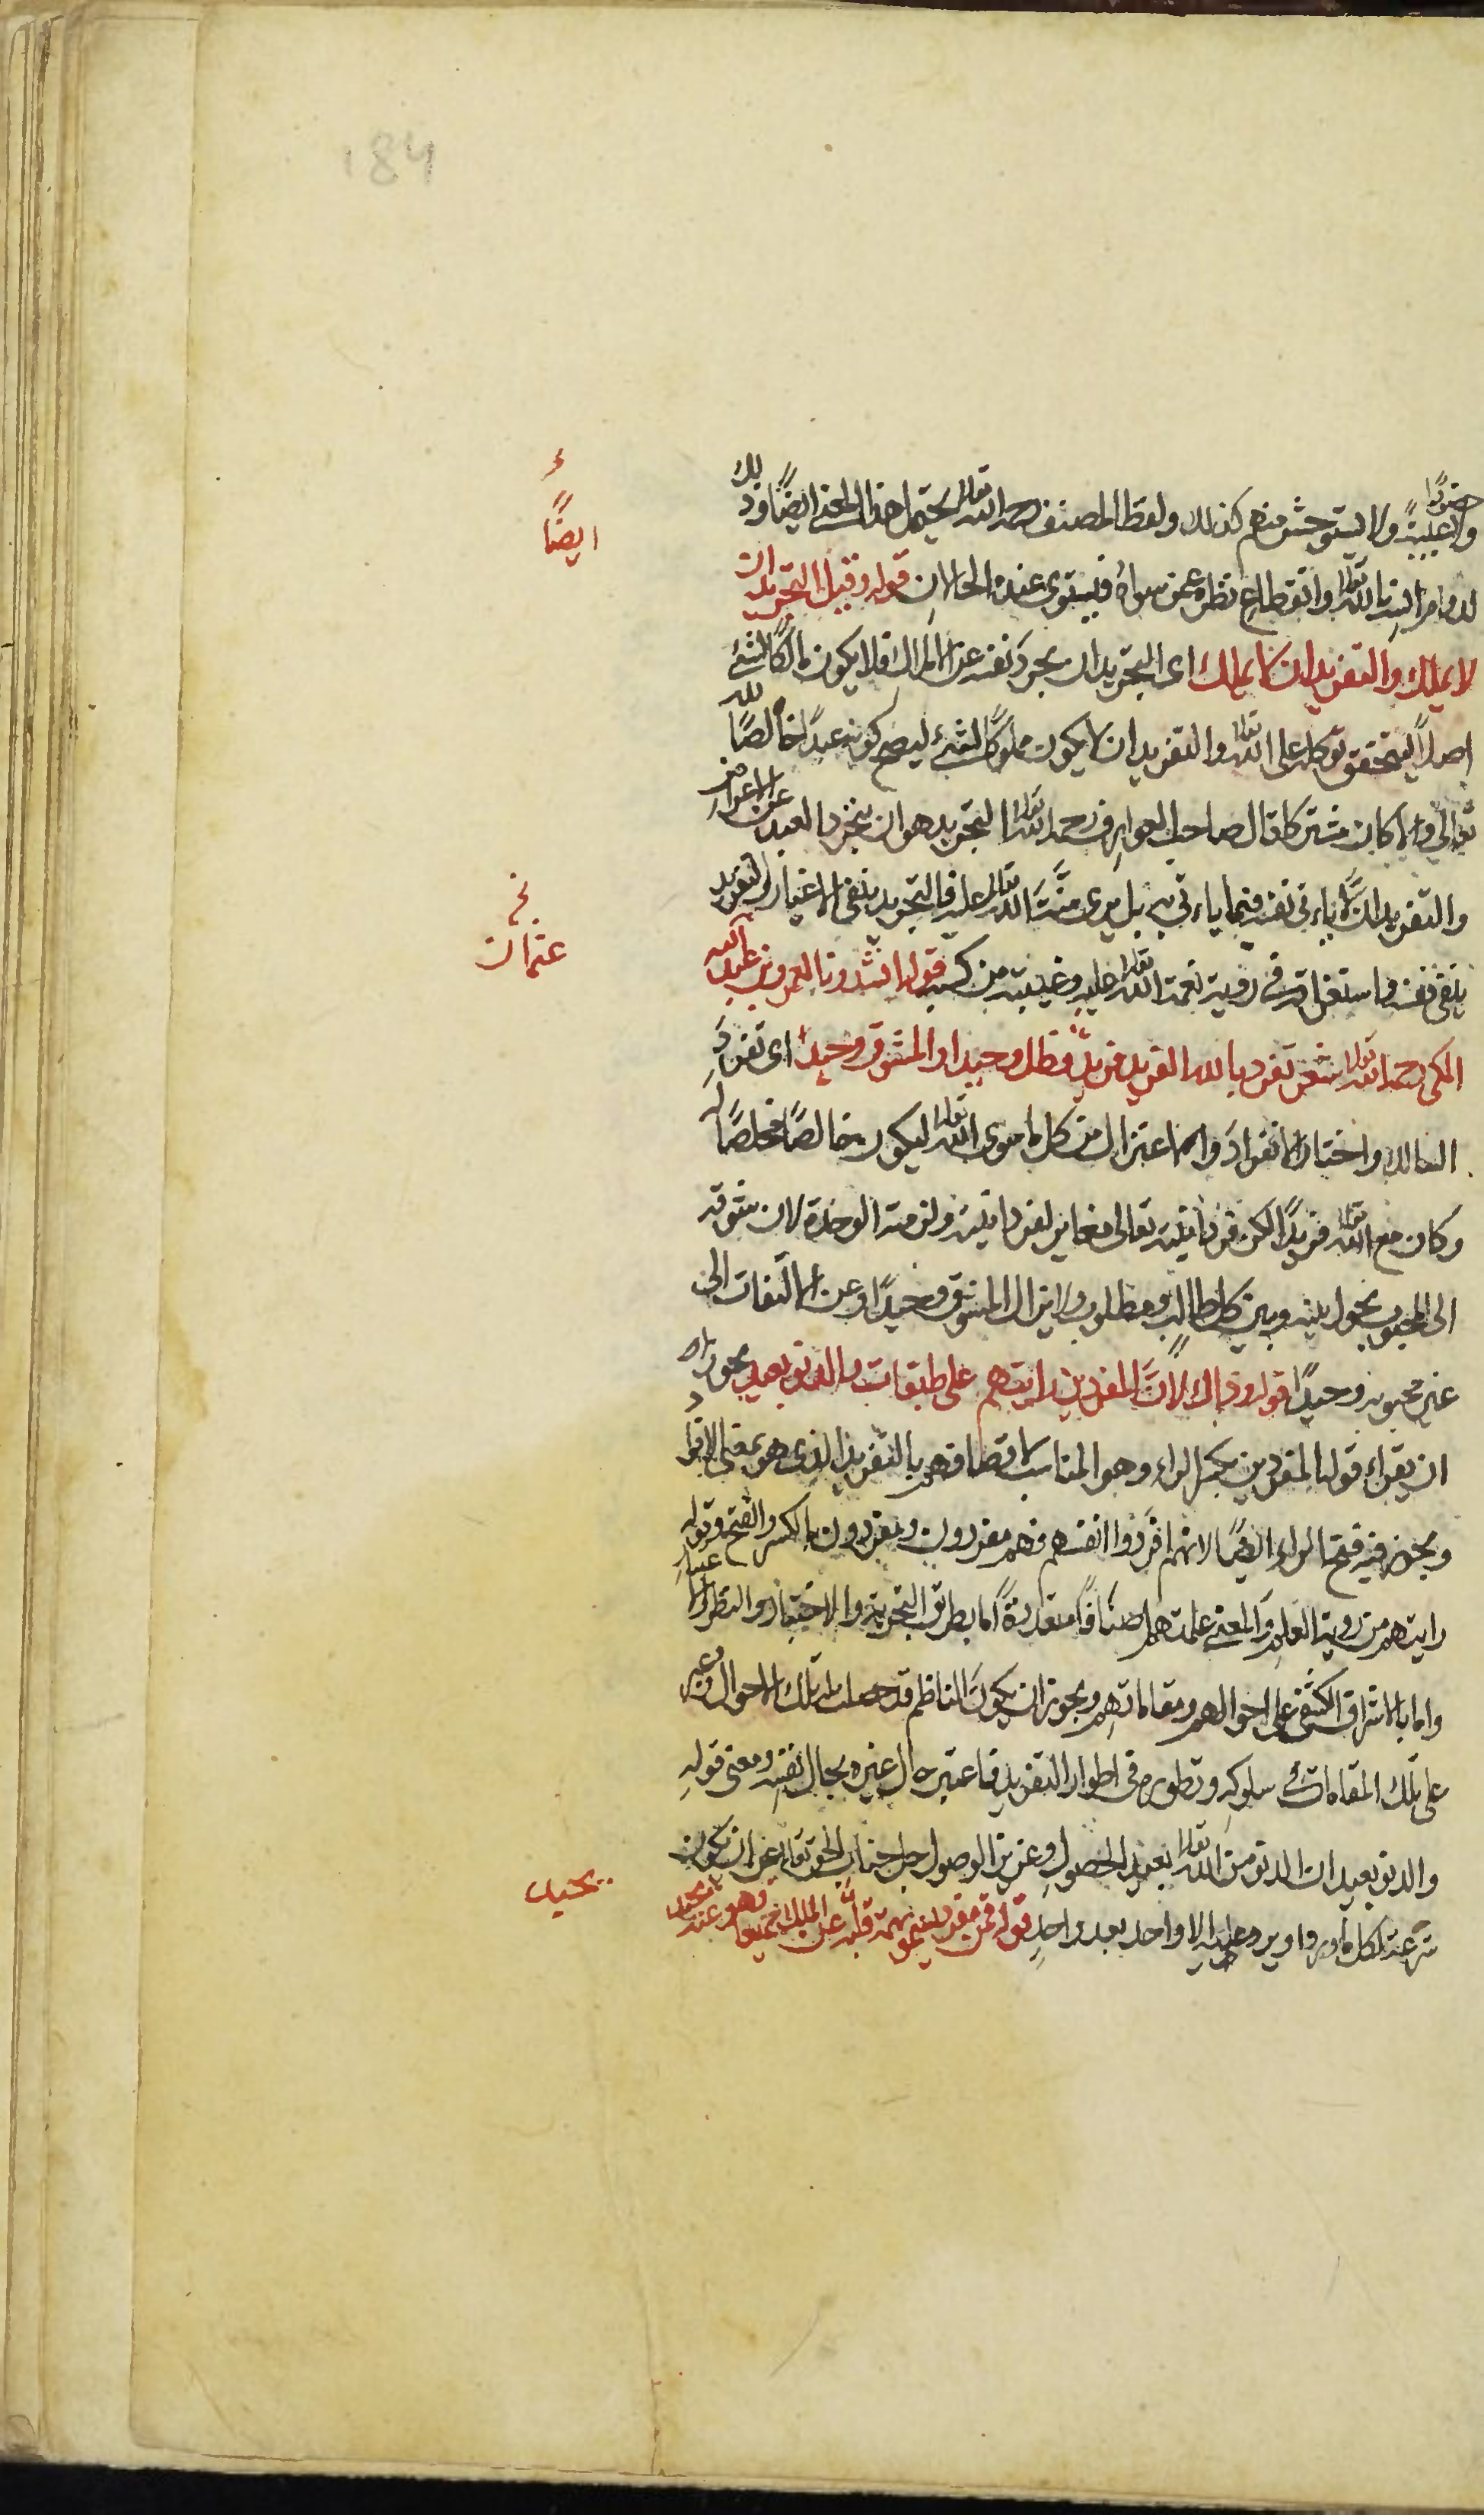 184
حضورًا
ولا غيبةً ولا يستوحش منهم كذلك ولفظ المصنف رحمه الله تعالى يحتمل هذا المعنى ايضًا وذلك
لدوام انسه بالله تعالى وانقطاع نظره عمن سواه فيستوى عنده الحالان قوله وقيل التجريد ان
لا يملك والتفريد ان لا يملك اى التجريد ان يجرد نفسه عن الملك فلا يكون مالكًا لشئ
اصلًا ليتحقق توكله على الله تعالى والتفريد ان لا يكون مملوكًا لشئ ليصح كونه عبدًا خالصًا لله
تعالى ولا كان مشتركا قال صاحب العوارف رحمه الله تعالى التجريد هو ان يتجرد العبد عن الاعراض
والتفريد ان لا يرى نفسه فيما ياتى به بل يرى منّة الله تعالى عليه فالتجريد ينفى الاغيار والتفريد
ينفى نفسه واستغراقه فى رؤية نعمة الله تعالى عليه وغيبته من كسبه قوله انشدونا لعمرو بن عبد الله
المكى رحمه الله تعالى شعر تفرد بالله الفريد فريد فظل وحيدا والمشوق وحيد اى تفرد
السالك واختار الانفراد والاعتزال من كل ما سوى الله تعالى ليكون خالصًا مخلصًا له
وكان مع الله تعالى فريدًا لكن فردانيته تعالى مغاير لفردانيته ولزمته الوحدة لان شوقه
الى المحبوب يحول بينه وبين كل طالب ومطلوب ولا يزال المشوق وحيدًا وعن الالتفات الى
غير محبوبه وحيدًا قوله وذاك لان المفردين رايتهم على طبقات والدنو بعيد يجوز
ان يقراء قوله المفردين بكسر الراء وهو المناسب لاتصافهم بالتفريد الذى هو بمعنى الافراد
ويجوز فيه فتح الراء ايضًا لانهم افردوا انفسهم فهم مفردون ومفردون بالكسر والفتح وقوله
رايتهم من رؤية العلم والمعنى علمتهم اصنافًا متعددة اما بطريق التجربة والاختبار والنظر والاعتبار
واما بالاشراق الكشفى على احوالهم ومقاماتهم ويجوز ان يكون الناظم قد حصلت له تلك الاحوال وعبر
على تلك المقامات فى سلوكه وتطوره فى اطوار التفريد فاعتبر حال غيره بحال نفسه ومعنى قوله
والدنو بعيد ان الدنو من الله تعالى بعيد الحصول وعزيز الوصول جل جناب الحق تعالى عن ان يكون
شرعة لكل وارد او يرد عليه الا واحد بعد واحد قوله فمن مفرد يسمو بهمة قلبه عن الملك جميعا وهو عنه يحيد
ء
ايضًا
نخ
عثمان
يحيد